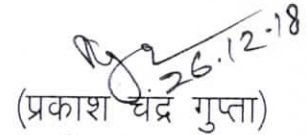 26.12.18
(प्रकाश चंद्र गुप्ता)